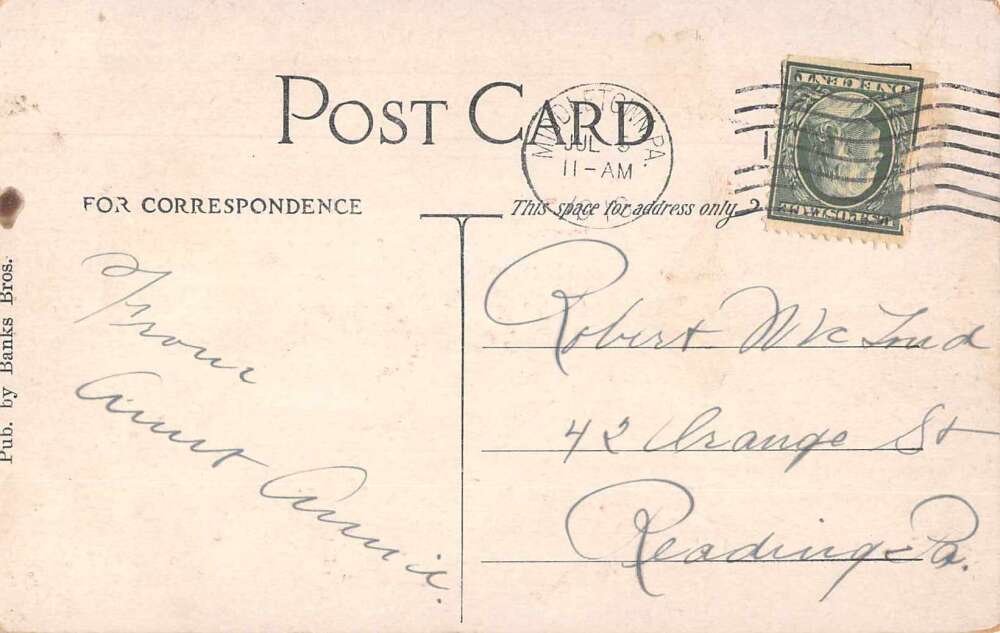 POST CARD
MIDDLETOWN, PA.
JUL
11-AM
ONE CENT
U.S. POSTAGE
FOR CORRESPONDENCE
This space for address only
Pub. by Banks Bros.
From
Aunt Annie.
Robert
42 Orange St
Reading Pa.